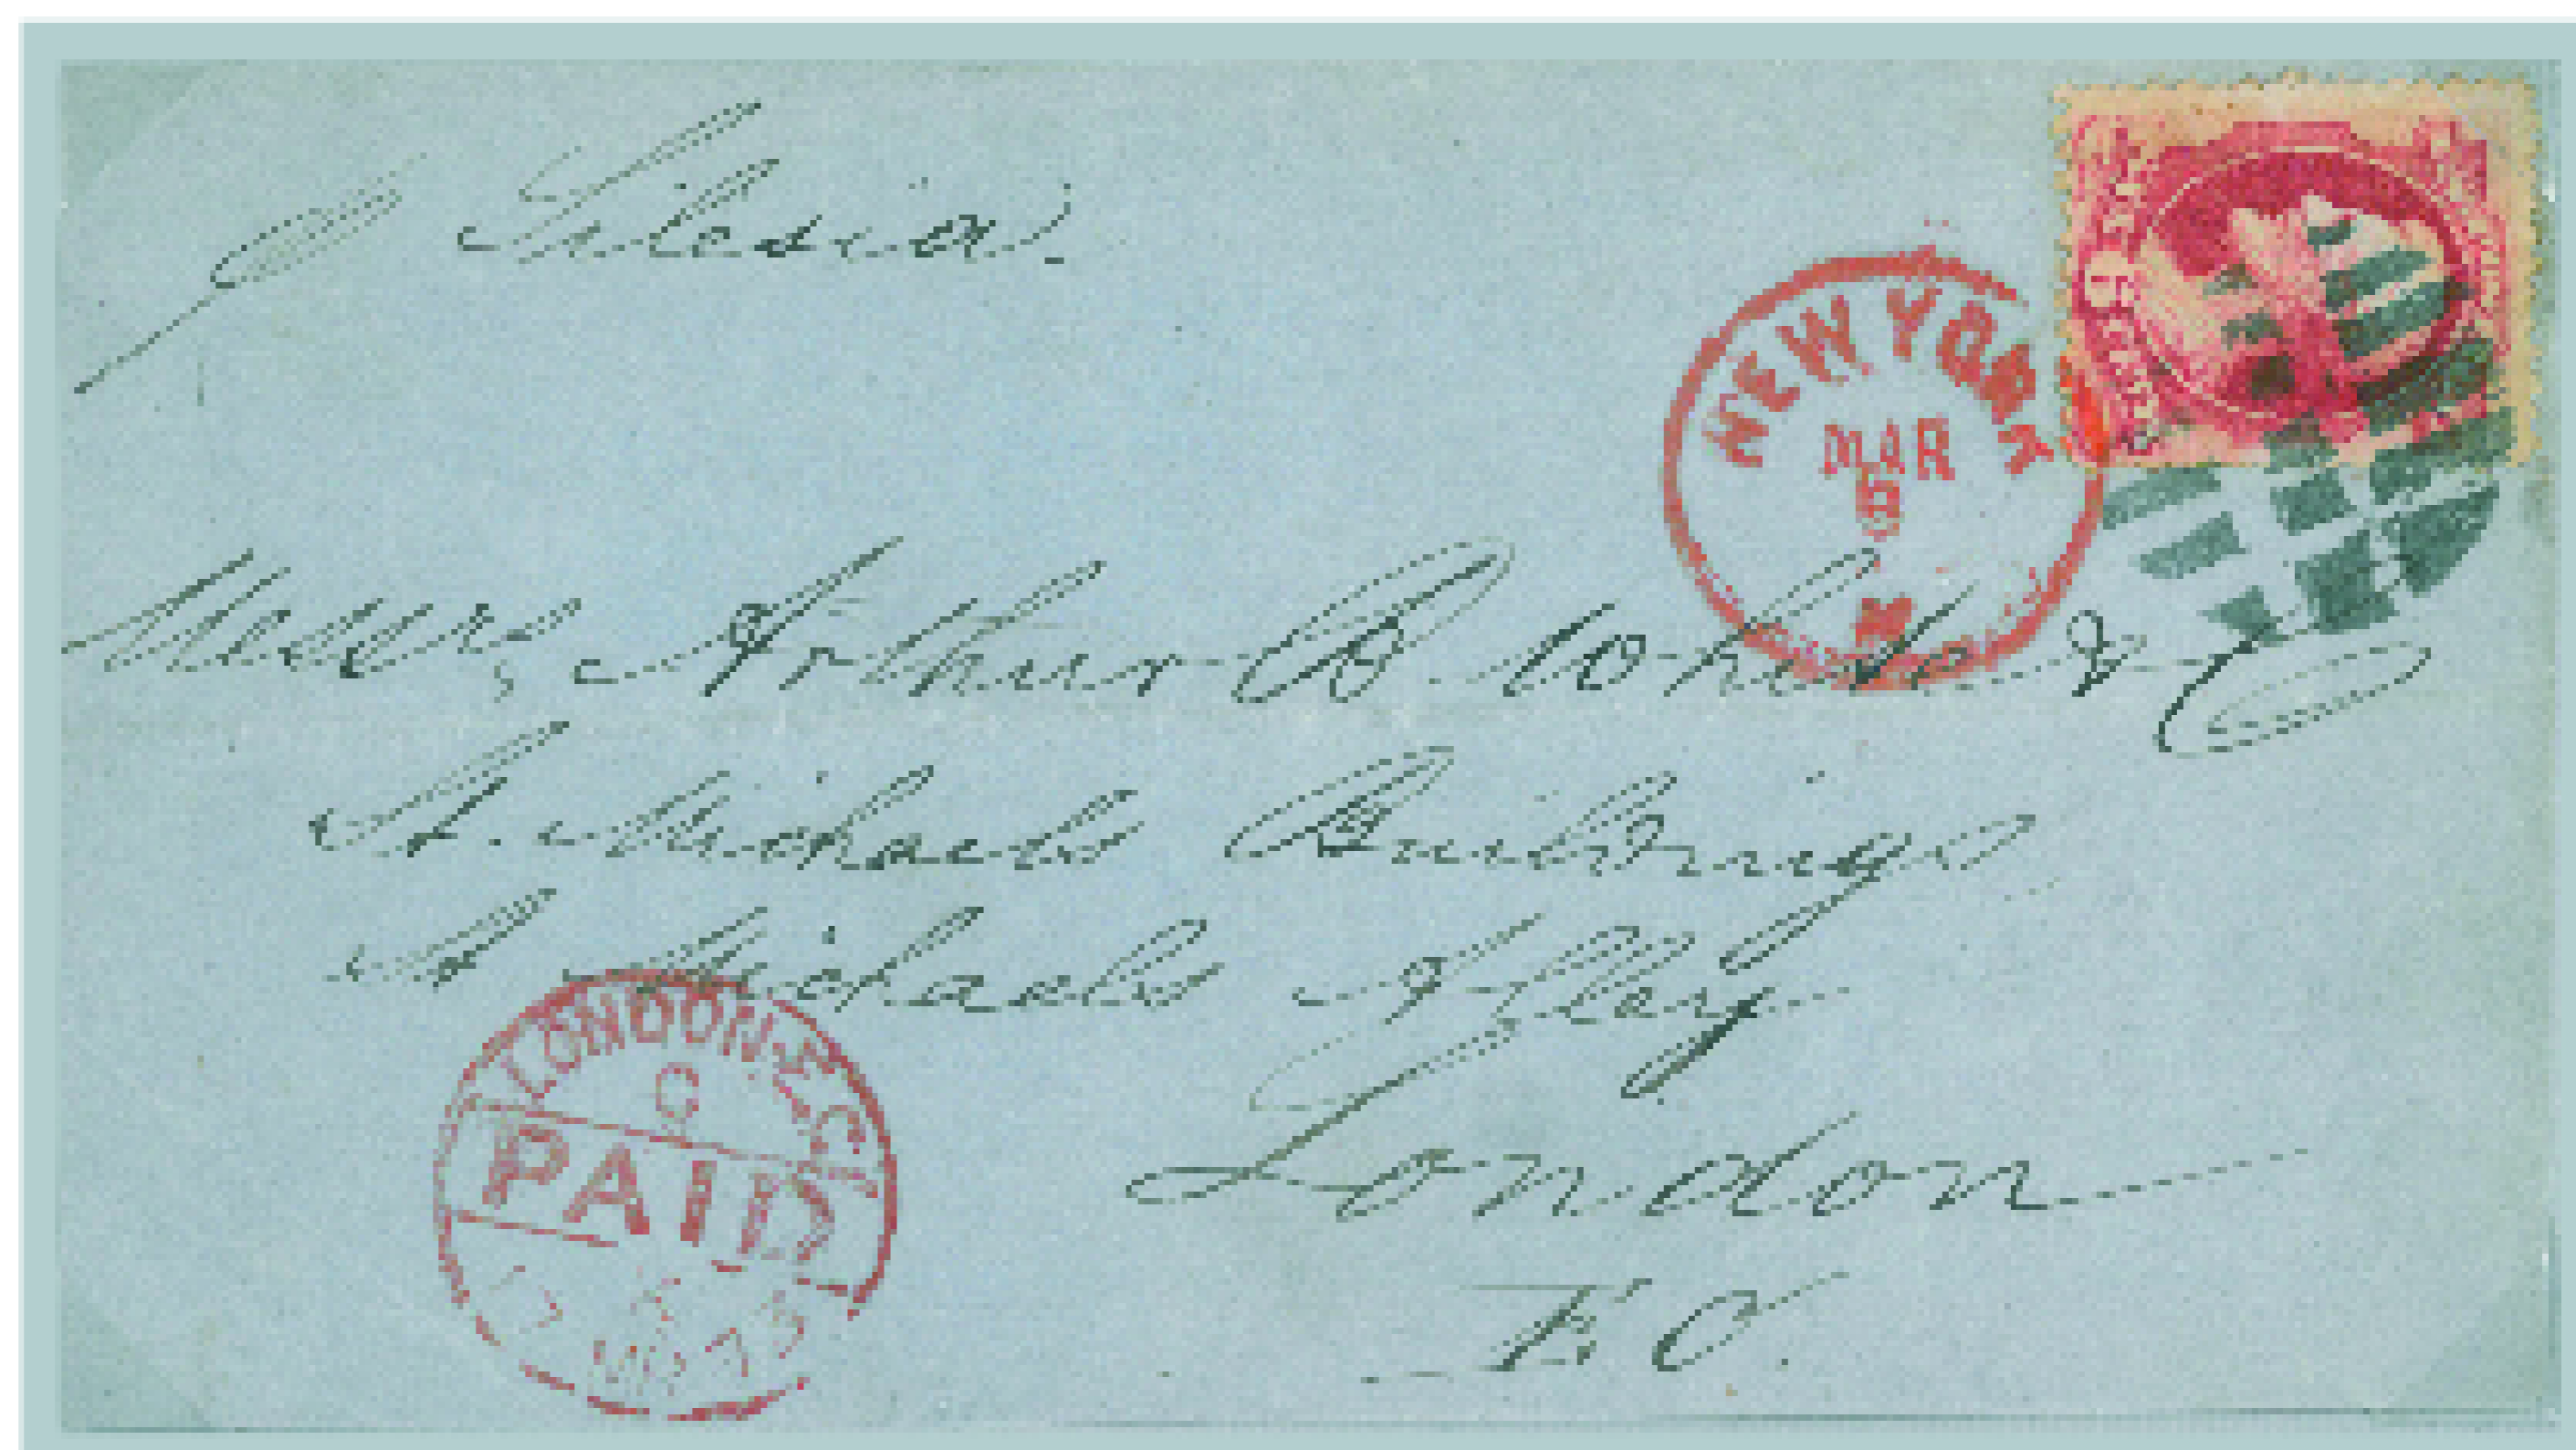 p Silesia.
NEW YORK
MAR
Messrs Arthur B. White & Co
St. Michaels Buildings
St Michaels Alley
London
E C.
LONDON-E.C
C
PAID
MR 73